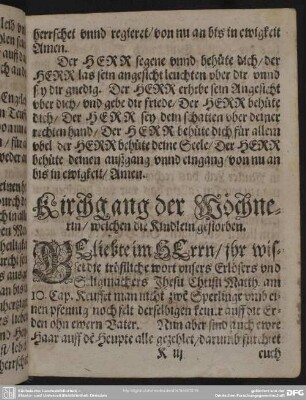 herrschet vnnd regieret/ von nu an bis in ewigkeit
Amen.
Der HERR segene vnnd behüte dich/ der
HERR las sein angesicht leuchten vber dir vnnd
sey dir gnedig. Der HERR erhebe sein Angesicht
vber dich/ vnd gebe dir friede/ Der HERR behüte
dich/ Der HERR sey dein schatten vber deiner
rechten hand/ Der HERR behüte dich für allem
vbel der HERR behüte deine Seele/ Der HERR
behüte deinen außgang vnnd eingang/ von nu an
bis in ewigkeit/ Amen.
Kirchgang der Wöchne-
rin/ welchen die Kindlein gestorben.
GEliebte im HErrn/ jhr wis-
set die tröstliche wort vnsers Erlösers vnd
Seligmachers Jhesu Christi Matth. am
10. Cap. Kauffet man nicht zwe Sperlinge vmb ei-
nen pfennig noch felt derselbigen keiner auff die Er-
den ohn ewern Vater. Nun aber sind auch ewre
Haar auff dē Heupte alle gezehlet/ darumb fürchtet
K iij euch